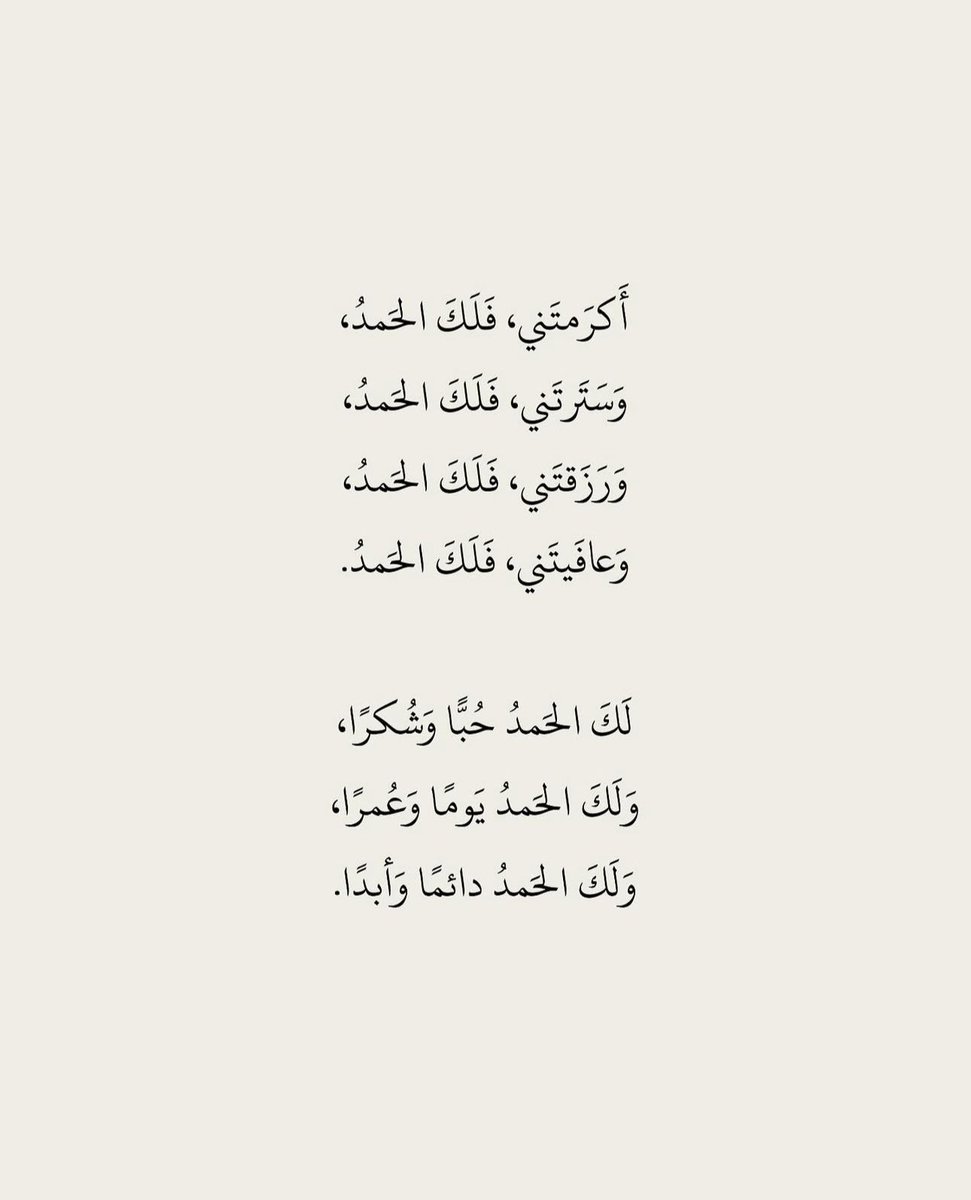 أَكرَمتَني، فَلَكَ الحَمدُ،
وَسَتَرتَني، فَلَكَ الحَمدُ،
وَرَزَقتَني، فَلَكَ الحَمدُ،
وَعافَيتَني، فَلَكَ الحَمدُ.
لَكَ الحَمدُ حُبًّا وَشُكرًا،
وَلَكَ الحَمدُ يَومًا وَعُمرًا،
وَلَكَ الحَمدُ دائمًا وَأبدًا.